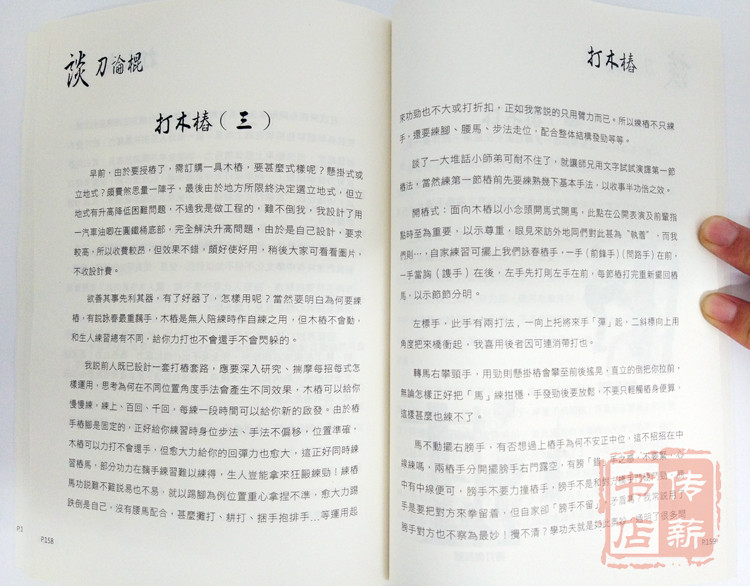 談刀論棍
打木樁（三）
早前，由於要授樁了，需訂購一具木樁，要甚麼式樣呢？懸掛式或
立地式？頗費煞思量一陣子，最後由於地方所限終決定選立地式，但立
地式有升高降低困難問題，不過我是做工程的，難不倒我，我設計了用
一汽車油唧在圓鐵桶底部，完全解決升高問題，由於是自己設計，要求
較高，所以收費較昂，但效果不錯，頗好使好用，稍後大家可看看圖片，
不收設計費。
欲善其事先利其器，有了好器了，怎樣用呢？當然要明白為何要練
樁，有說詠春最重黐手，木樁是無人陪練時作自練之用，但木樁不會動，
和生人練習總有不同，給你力打也不會還手不會閃躲的。
我説前人既已設計一套打樁套路，應要深入研究、揣摩每招每式怎
樣運用，思考為何在不同位置角度手法會產生不同效果，木樁可以給你
慢慢練，練上、百回、千回，每練一段時間可以給你新的啟發。由於樁
手樁腳是固定的，正好給你練習時身位步法、手法不偏移，位置準確，
木樁可以力打不會還手，但愈大力給你的回彈力也愈大，這正好同時練
習樁馬，部分功力在黐手練習難以練得，生人豈能拿來狂毆練勁！練樁
馬功說難不難說易也不易，就以踢腳為例位置重心拿捏不準，愈大力踢
跌倒是自己，沒有腰馬配合，甚麼攤打、耕打、捆手抱排手...等運用起
P1
P158
打木樁
來功勁也不大或打折扣。正如我常説的只用臂力而已。所以練樁不只練
手，還要練腳、腰馬、步法走位，配合整体結構發勁等等。
談了一大堆話小師弟可耐不住了，就讓師兄用文字試試演譯第一節
樁法，當然練第一節樁前先要練熟幾下基本手法，以收事半功倍之效。
開樁式：面向木樁以小念頭開馬式開馬，此點在公開表演及前輩指
時時至為重要，以示尊重，眼見來訪外地同們對此甚為“執善”，而我
們則…，自家練習可擺上我們詠春樁手，一手（前鋒手）（問路手）在前，
一手當胸（護手）在後，左手先打則左手在前，每節樁打完重新擺回樁
馬，以示節節分明。
左標手，此手有兩打法，一向上托將來手「彈」起，二斜標向上用
角度把來橋衝起，我喜用後者因可連消帶打也。
轉馬右攀頸手，用勁則懸掛樁會攀至前後搖晃，直立的倒把你拉前，
無論怎樣正好把「馬」練拑穩，手發勁後要放鬆，不要只輕觸樁身便算，
這樣甚麼也練不了。
馬不動擺右膀手，有否想過上樁手為何不安正中位，這不招招在中
線練嗎，兩樁手分開擺膀手右門露空，有膀「錯
中有中線便可，膀手不要力撞樁手，膀手不是
手是要把對方來拳留着，但自家卻「膀手不留」
膀手對方也不察為最妙！攪不清？學功夫就是
P159
传薪书店